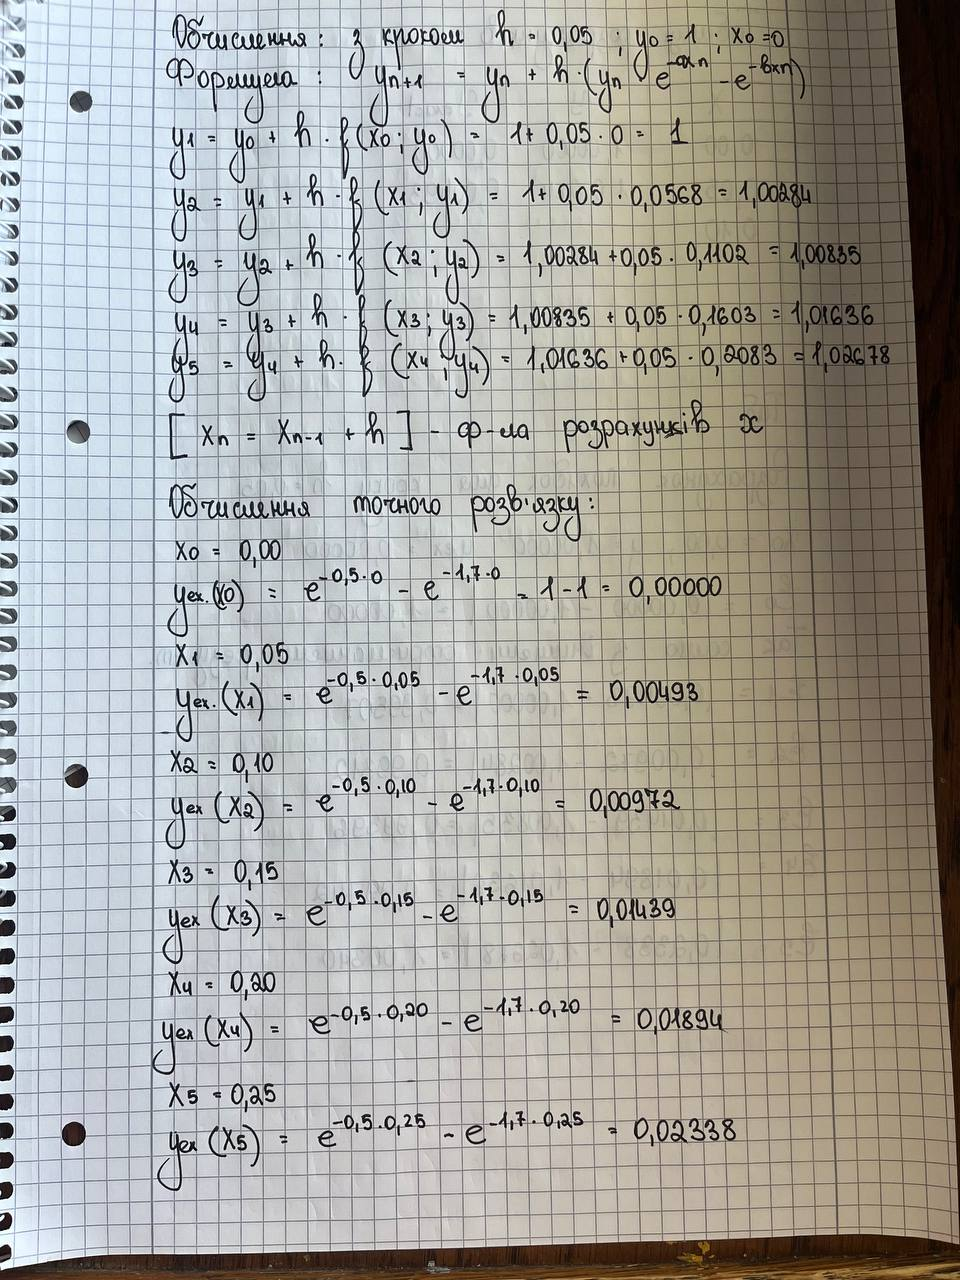 Обчислення: з кроком h = 0,05 ; y0 = 1 ; x0 = 0
Формула : yn+1 = yn + h·(yn e^-axn - e^-bxn)
y1 = y0 + h · f(x0; y0) = 1 + 0,05 · 0 = 1
y2 = y1 + h · f (x1; y1) = 1 + 0,05 · 0,0568 = 1,00284
y3 = y2 + h · f (x2; y2) = 1,00284 + 0,05 · 0,1102 = 1,00835
y4 = y3 + h · f (x3; y3) = 1,00835 + 0,05 · 0,1603 = 1,01636
y5 = y4 + h · f (x4; y4) = 1,01636 + 0,05 · 0,2083 = 1,02678
[ xn = xn-1 + h ] - ф-ла розрахунків x
Обчислення точного розв'язку:
x0 = 0,00
yex.(x0) = e^-0,5·0 - e^-1,7·0 = 1 - 1 = 0,00000
x1 = 0,05
yex.(x1) = e^-0,5·0,05 - e^-1,7·0,05 = 0,00493
x2 = 0,10
yex (x2) = e^-0,5·0,10 - e^-1,7·0,10 = 0,00972
x3 = 0,15
yex (x3) = e^-0,5·0,15 - e^-1,7·0,15 = 0,01439
x4 = 0,20
yex (x4) = e^-0,5·0,20 - e^-1,7·0,20 = 0,01894
x5 = 0,25
yex (x5) = e^-0,5·0,25 - e^-1,7·0,25 = 0,02338